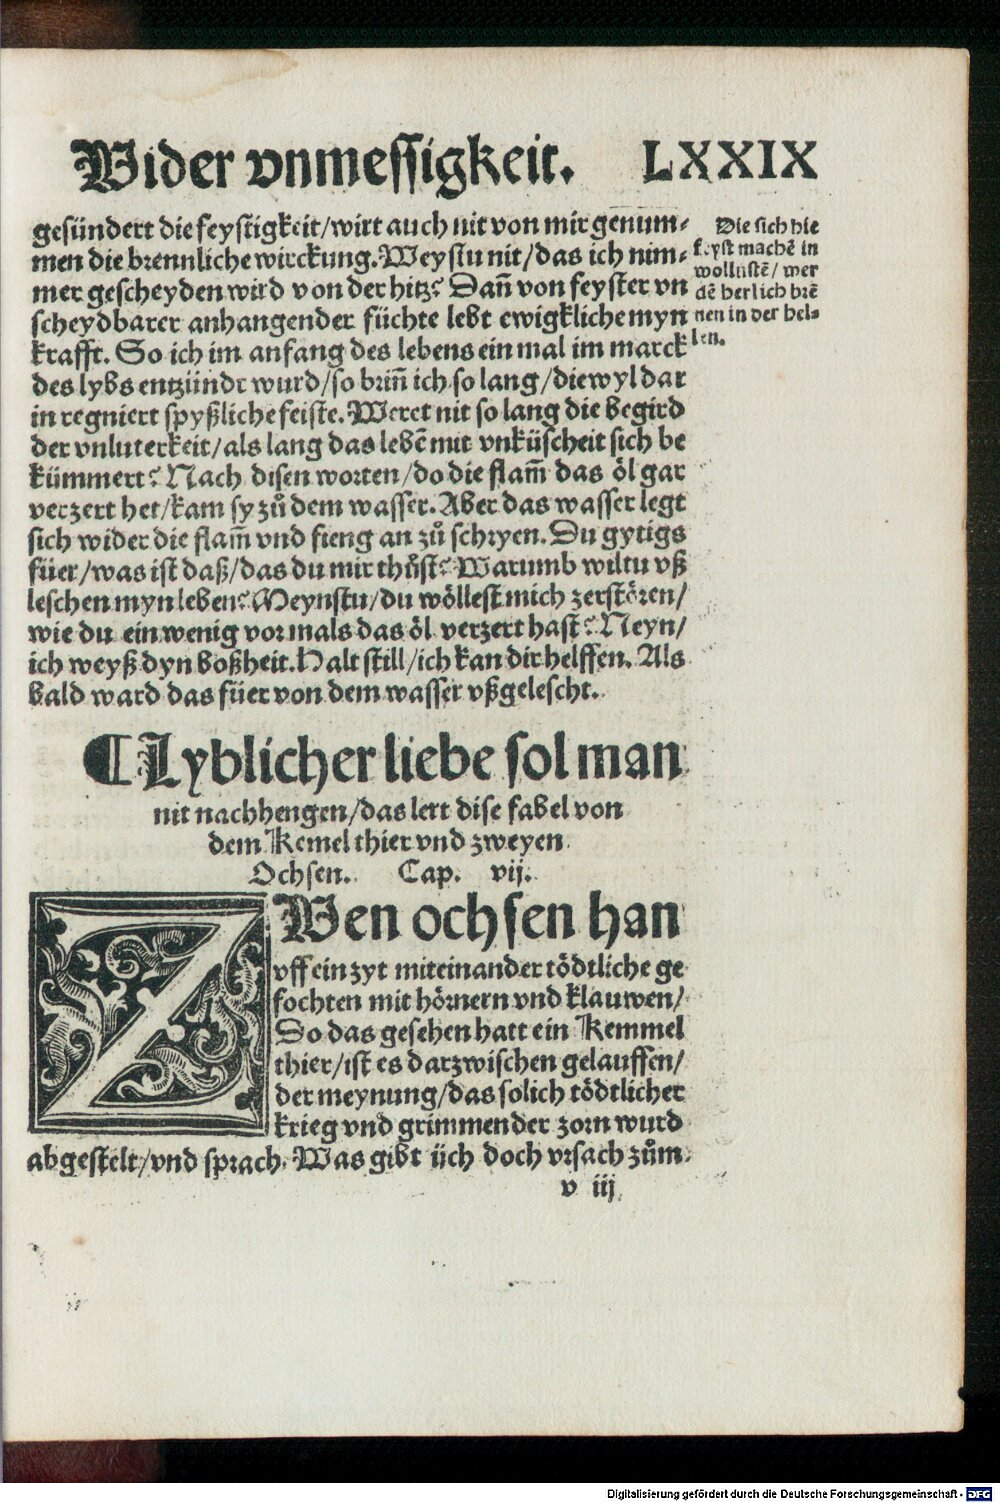 Wider vnmessigkeit. LXXIX
gesündert die feystigkeit/wirt auch nit von mir genum⸗
men die brennliche wirckung. Weystu nit/das ich nim⸗
mer gescheyden wird von der hitz? Dañ von feyster vn
scheydbarer anhangender füchte lebt ewigkliche myn
krafft. So ich im anfang des lebens ein mal im marck
des lybs entzündt wurd/so briñ ich so lang/diewyl dar
in regniert spyßliche feiste. Weret nit so lang die begird
der vnluterkeit/als lang das lebē mit vnküscheit sich be
kümmert? Nach disen worten/do die flam̃ das öl gar
verzert het/kam sy zů dem wasser. Aber das wasser legt
sich wider die flam̃ vnd fieng an zů schryen. Du gytigs
füer/was ist daß/das du mir thůst? Warumb wiltu vß
leschen myn leben? Meynstu/du wöllest mich zerstören/
wie du ein wenig vormals das öl verzert hast? Neyn/
ich weyß dyn boßheit. Halt still/ich kan dir helffen. Als
bald ward das füer von dem wasser vßgelescht.
Die sich hie
feyst machē in
wollustē/ wer
dē herlich brē
nen in der hel⸗
len.
¶ Lyblicher liebe sol man
nit nachhengen/das lert dise fabel von
dem Kemel thier vnd zweyen
Ochsen. Cap. vij.
ZWen ochsen han
vff ein zyt miteinander tödtliche ge
fochten mit hörnern vnd klauwen/
So das gesehen hatt ein Kemmel
thier/ist es darzwischen gelauffen/
der meynung/das solich tödtlicher
krieg vnd grimmender zorn wurd
abgestelt/vnd sprach. Was gibt üch doch vrsach zům
v iij
Digitalisierung gefördert durch die Deutsche Forschungsgemeinschaft - DFG